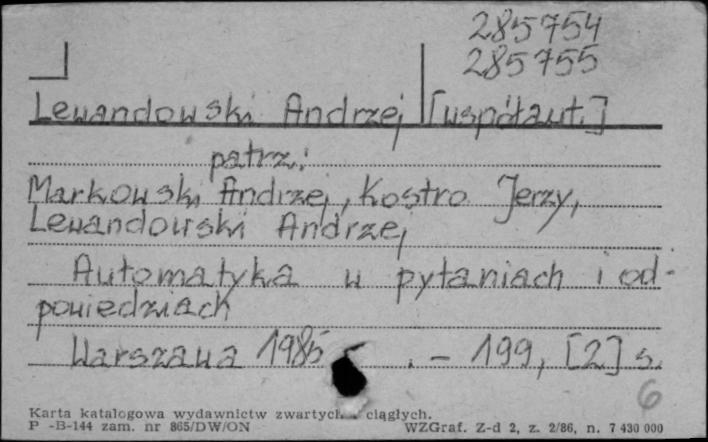 285754
285755
Lewandowski Andrzej [współaut.]
patrz:
Markowski Andrzej, Kostro Jerzy,
Lewandowski Andrzej
Automatyka w pytaniach i od-
powiedziach
Warszawa 1985 . - 199, [2] s.
6
Karta katalogowa wydawnictw zwartych ciągłych.
P -B-144 zam. nr 865/DW/ON WZGraf. Z-d 2, z. 2/86, n. 7 430 000